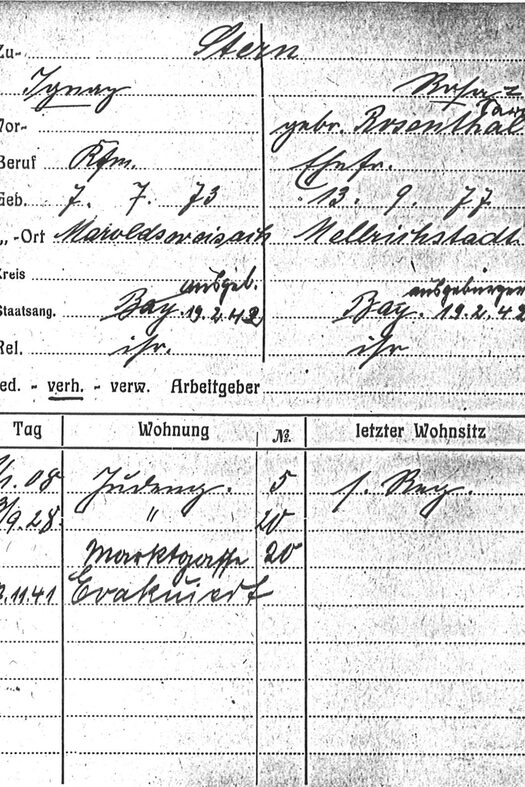 Zu- Stern
Ignaz Rosa =
Vor- gebr. Rosenthal
Beruf Kfm. Ehefr.
Geb. 7. 7. 73 13. 9. 77
„ -Ort Maroldsweisach Mellrichstadt.
Kreis ausgeb. ausgebürgert
Staatsang. Bay. 19.2.42 Bay. 19.2.42
Rel. isr. isr
led. - verh. - verw. Arbeitgeber
Tag Wohnung № letzter Wohnsitz
08 Judeng. 5 s. Reg.
9.28. " 20
Marktgasse 20
11.41 Evakuiert